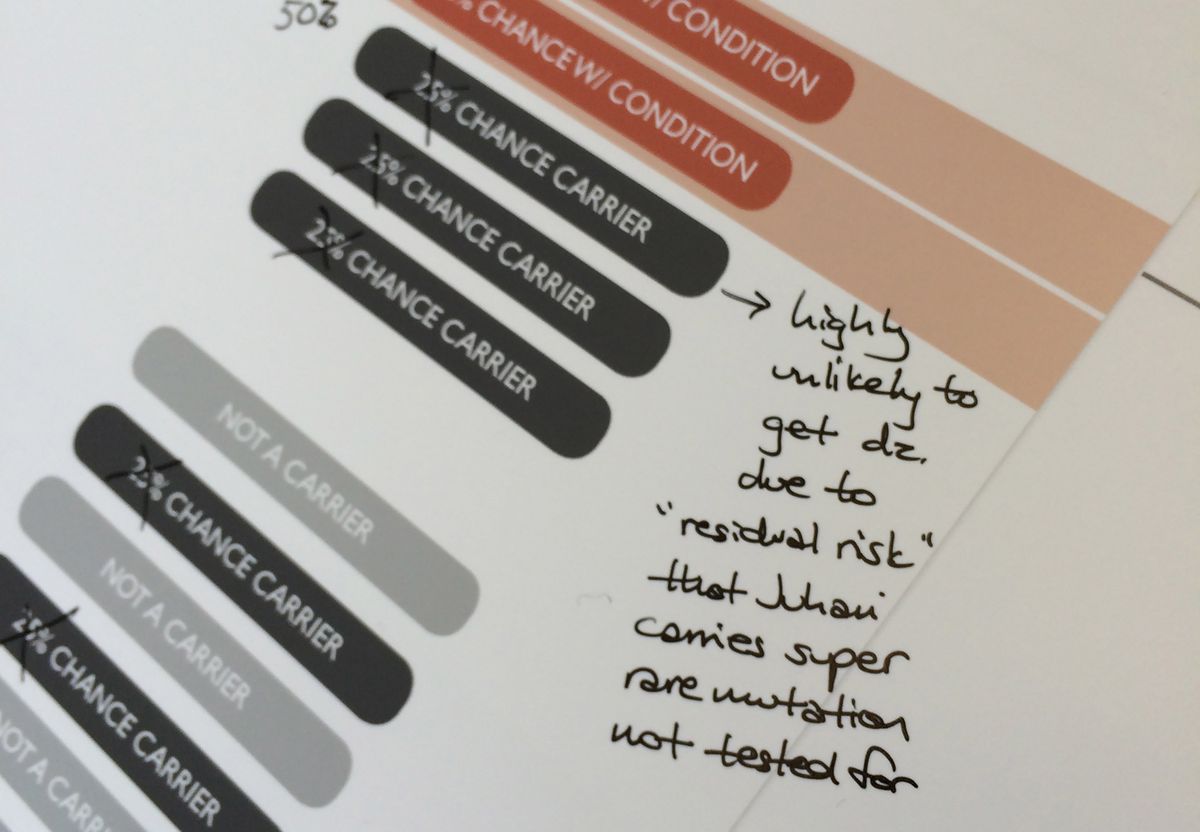 50%
CONDITION
% CHANCE W/ CONDITION
25% CHANCE CARRIER
25% CHANCE CARRIER
25% CHANCE CARRIER
NOT A CARRIER
25% CHANCE CARRIER
NOT A CARRIER
25% CHANCE CARRIER
NOT A CARRI
→ highly
unlikely to
get dz.
due to
"residual risk"
that Juhani
carries super
rare mutation
not tested for